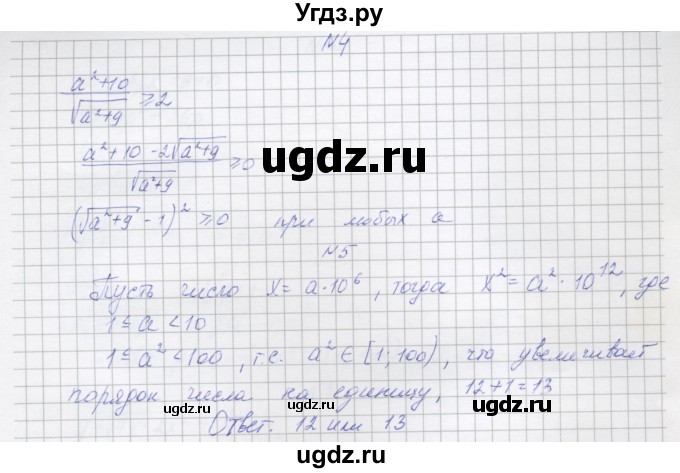 Угдз.ру
N4
(a²+10)/√(a²+9) ≥ 2
(a²+10-2√(a²+9))/√(a²+9) ≥ 0
(√(a²+9) - 1)² ≥ 0 при любых a
ugdz.ru ugdz.ru
N5
Пусть число x = a·10⁶, тогда x² = a²·10¹², где
1 ≤ a < 10
1 ≤ a² < 100, т.е. a² ∈ [1; 100), что увеличивает
порядок числа на единицу, 12+1=13
ugdz.ru ugdz.ru ugdz.ru
Ответ. 12 или 13